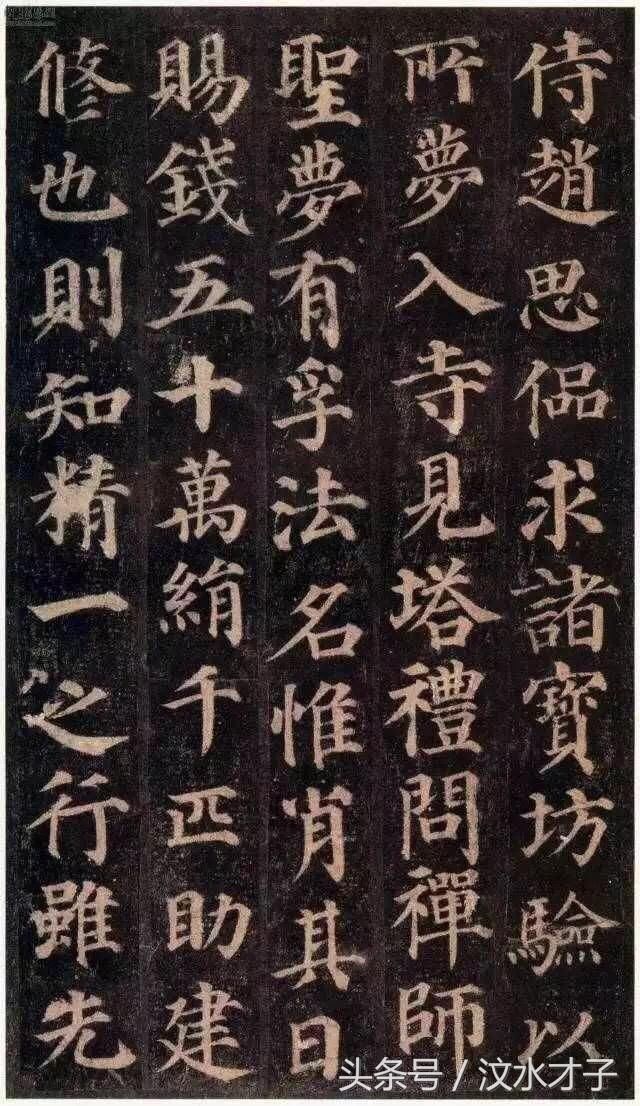 侍趙思偘求諸寶坊驗以
所夢入寺見塔禮問禪師
聖夢有孚法名惟肖其日
賜錢五十萬絹千匹助建
修也則知精一之行雖先
头条号 / 汶水才子